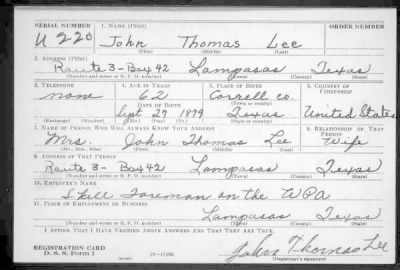 SERIAL NUMBER 1. NAME (Print) ORDER NUMBER
U 220 John Thomas Lee
(First) (Middle) (Last)
2. ADDRESS (Print)
Route 3- Box 42 Lampasas Texas
(Number and street or R. F. D. number) (Town) (County) (State)
3. TELEPHONE 4. AGE IN YEARS 5. PLACE OF BIRTH 6. COUNTRY OF CITIZENSHIP
none 62 Coryell co.
DATE OF BIRTH (Town or county)
Sept 27 1879 Texas United States
(Exchange) (Number) (Mo.) (Day) (Yr.) (State or country)
7. NAME OF PERSON WHO WILL ALWAYS KNOW YOUR ADDRESS 8. RELATIONSHIP OF THAT PERSON
Mrs. John Thomas Lee Wife
(Mr., Mrs., Miss) (First) (Middle) (Last)
9. ADDRESS OF THAT PERSON
Route 3- Box 42 Lampasas Texas
(Number and street or R. F. D. number) (Town) (County) (State)
10. EMPLOYER'S NAME
Skill Foreman on the WPA
11. PLACE OF EMPLOYMENT OR BUSINESS
Lampasas Texas
(Number and street or R. F. D. number) (Town) (County) (State)
I AFFIRM THAT I HAVE VERIFIED ABOVE ANSWERS AND THAT THEY ARE TRUE.
REGISTRATION CARD
D. S. S. Form 1 John Thomas Lee
(Registrant's signature)